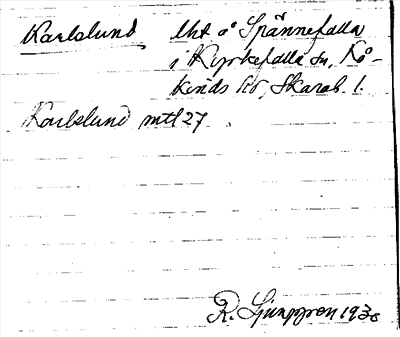 Karlslund lht å Spännefalla
i Kyrkefalla sn, Kå-
kinds hd, Skarab. l.
Karlslund mtl 27
R. Ljunggren 1938